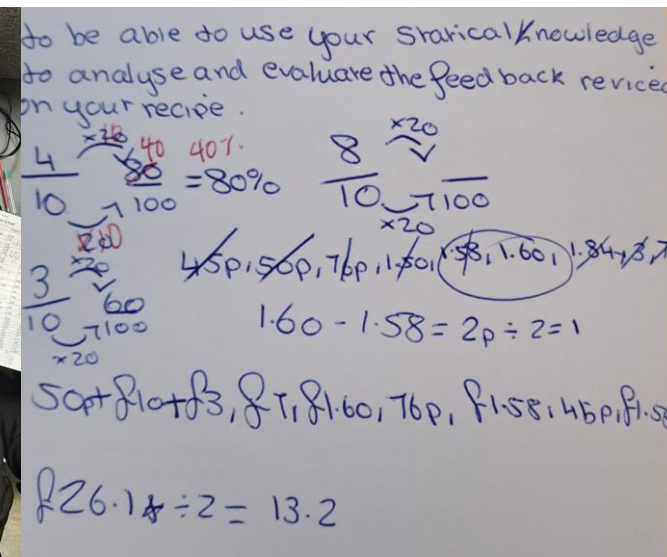 to be able to use your Staricalknowledge
to analyse and evaluate the feedback reviced
on your recipe.
×20 40 40% ×20
4/10 80/100 =80% 8/10 /100
×20 ×20
×20 45p, 50p, 76p, 1.50, 1.58, 1.60, 1.84, 3, 7
3/10 60/100
1.60 - 1.58 = 2p ÷ 2 = 1
×20
50p+£10+£3, £7, £1.60, 76p, £1.58, 45p, £1.58
£26.14 ÷ 2 = 13.2